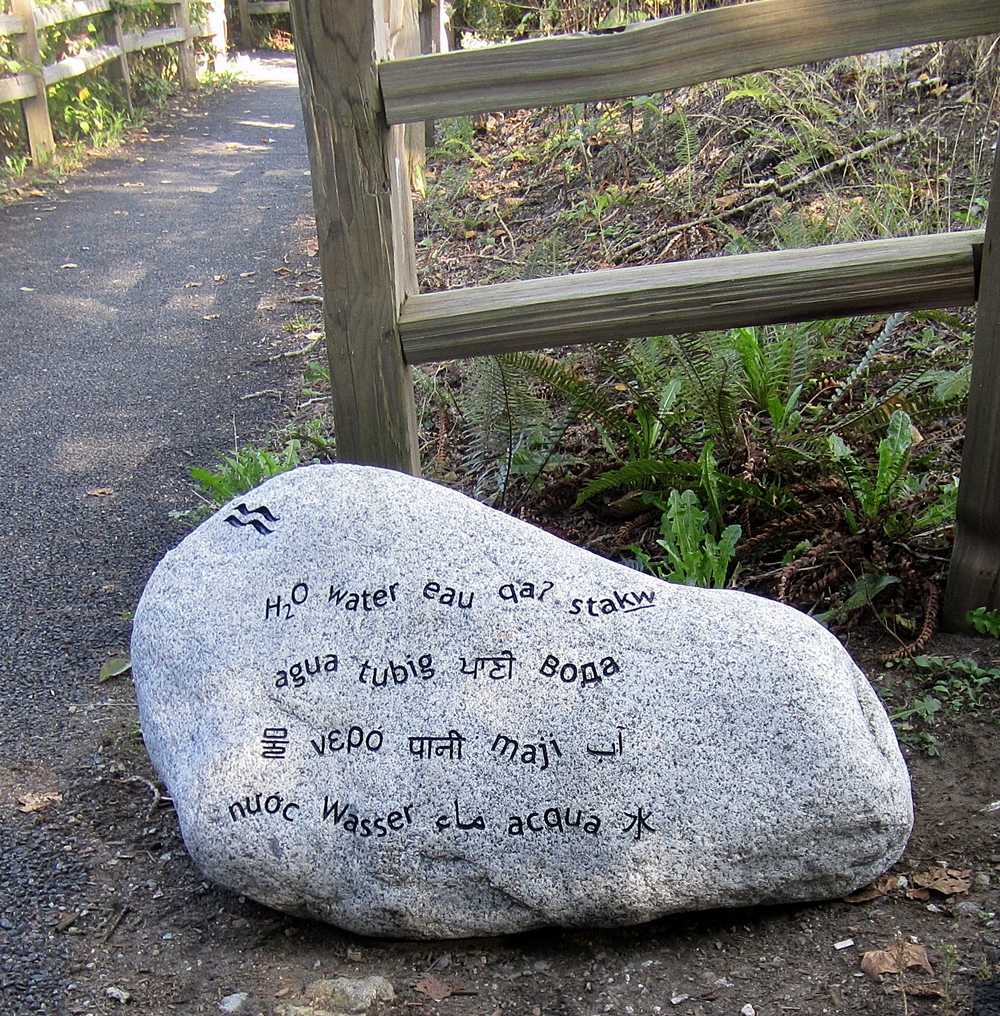 H₂O water eau qaʔ stak̲w̲
agua tubig ਪਾਣੀ вода
물 νερό पानी maji آب
nước Wasser ماء acqua 水